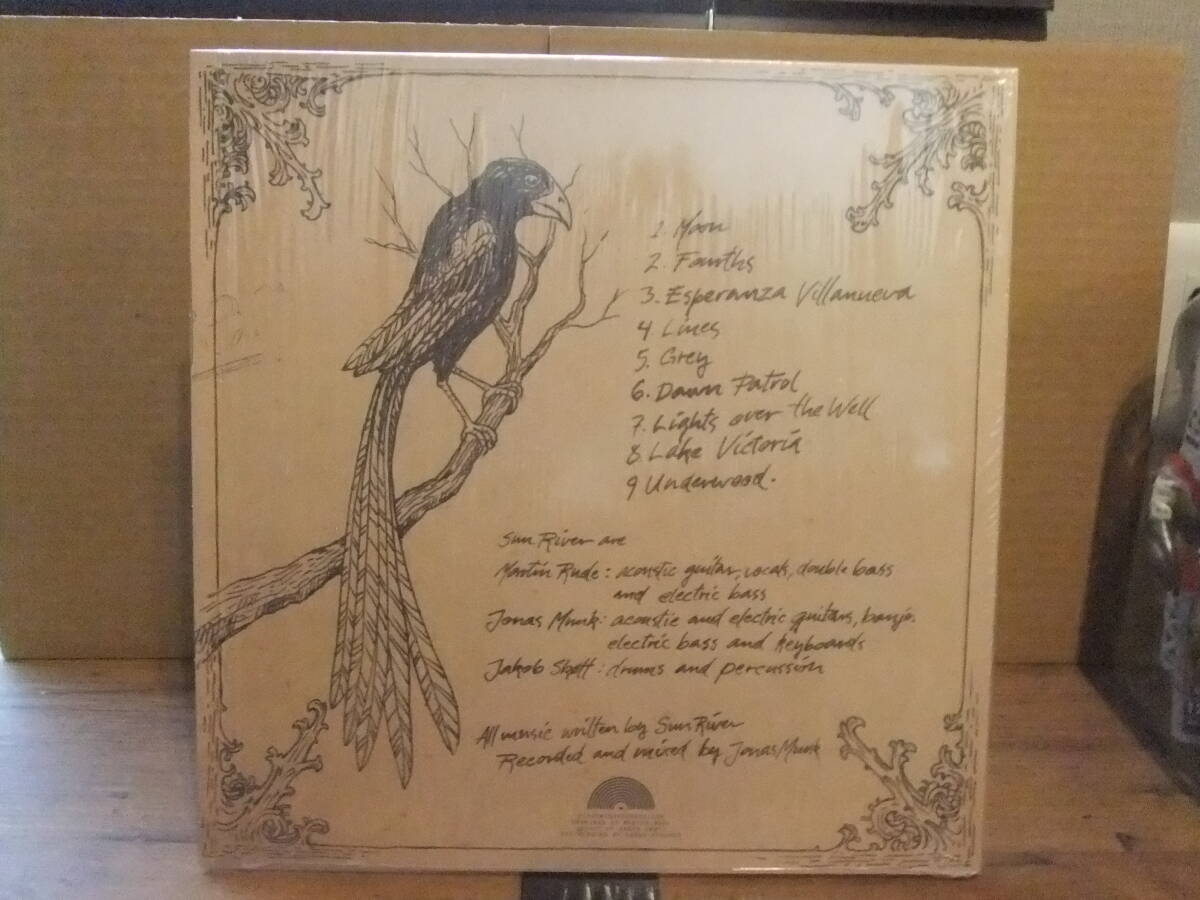 1. Moon
2. Fourths
3. Esperanza Villanueva
4. Lines
5. Grey
6. Dawn Patrol
7. Lights over the Well
8. Lake Victoria
9 Underwood.
Sun River are
Martin Rude: acoustic guitar, vocals, double bass
and electric bass
Jonas Munk: acoustic and electric guitars, banjo,
electric bass and keyboards
Jakob Skøtt: drums and percussion
All music written by Sun River
Recorded and mixed by Jonas Munk